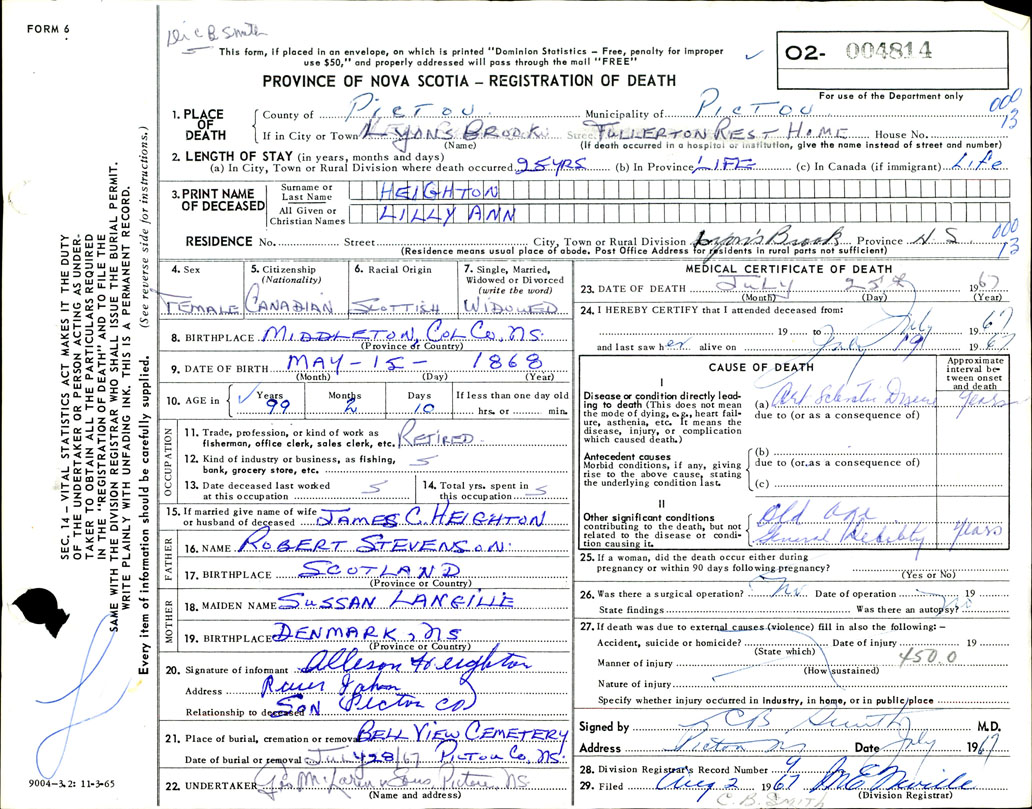 FORM 6
Dr C B Smith
This form, if placed in an envelope, on which is printed "Dominion Statistics – Free, penalty for improper
use $50," and properly addressed will pass through the mail "FREE"
O2- 004814
For use of the Department only
PROVINCE OF NOVA SCOTIA – REGISTRATION OF DEATH
1. PLACE OF DEATH
County of PICTOU Municipality of PICTOU 000
13
If in City or Town LYONS BROOK Street FULLERTON REST HOME House No.
(Name) (If death occurred in a hospital or institution, give the name instead of street and number)
2. LENGTH OF STAY (in years, months and days)
(a) In City, Town or Rural Division where death occurred 25 YRS (b) In Province LIFE (c) In Canada (if immigrant) LIFE
3. PRINT NAME OF DECEASED
Surname or Last Name HEIGHTON
All Given or Christian Names LILLY ANN
RESIDENCE No. Street City, Town or Rural Division Lyon's Brook Province N S 000
13
(Residence means usual place of abode. Post Office Address for residents in rural parts not sufficient)
4. Sex FEMALE
5. Citizenship (Nationality) CANADIAN
6. Racial Origin SCOTTISH
7. Single, Married, Widowed or Divorced (write the word) WIDOWED
8. BIRTHPLACE MIDDLETON, COL CO, NS.
(Province or Country)
9. DATE OF BIRTH MAY – 15 – 1868
(Month) (Day) (Year)
10. AGE in Years 99 Months 2 Days 10 If less than one day old hrs. or min.
OCCUPATION
11. Trade, profession, or kind of work as
fisherman, office clerk, sales clerk, etc. RETIRED
12. Kind of industry or business, as fishing,
bank, grocery store, etc.
13. Date deceased last worked
at this occupation
14. Total yrs. spent in
this occupation
15. If married give name of wife
or husband of deceased JAMES C. HEIGHTON
FATHER
16. NAME ROBERT STEVENSON
17. BIRTHPLACE SCOTLAND
(Province or Country)
MOTHER
18. MAIDEN NAME SUSSAN LANGILLE
19. BIRTHPLACE DENMARK, NS
(Province or Country)
20. Signature of informant Alleson Heighton
Address River John
Relationship to deceased SON Pictou CO
21. Place of burial, cremation or removal BELL VIEW CEMETERY
Date of burial or removal JULY 28/67 PICTOU CO, NS.
22. UNDERTAKER Jas McLaren & Sons Pictou NS.
(Name and address)
MEDICAL CERTIFICATE OF DEATH
23. DATE OF DEATH July 25th 1967
(Month) (Day) (Year)
24. I HEREBY CERTIFY that I attended deceased from:
19 to July 1967
and last saw her alive on July 1967
CAUSE OF DEATH
Approximate interval between onset and death
I
Disease or condition directly leading
to death (This does not mean
the mode of dying, e.g., heart failure,
asthenia, etc. It means the
disease, injury, or complication
which caused death.)
(a) Art Sclerotic Disease years
due to (or as a consequence of)
Antecedent causes
Morbid conditions, if any, giving
rise to the above cause, stating
the underlying condition last.
(b)
due to (or as a consequence of)
(c)
II
Other significant conditions
contributing to the death, but not
related to the disease or condition
causing it.
Old age
General Debility years
25. If a woman, did the death occur either during
pregnancy or within 90 days following pregnancy?
(Yes or No)
26. Was there a surgical operation? No Date of operation 19
State findings Was there an autopsy? No
27. If death was due to external causes (violence) fill in also the following: –
Accident, suicide or homicide? Date of injury 19
(State which)
Manner of injury 450.0
(How sustained)
Nature of injury
Specify whether injury occurred in industry, in home, or in public place
Signed by C B Smith M.D.
Address Pictou NS Date July 1967
28. Division Registrar's Record Number 9
29. Filed Aug 2 1967 M E Neville
(Division Registrar)
C. B. SMITH
9004-3.2: 11-3-65
SEC. 14 – VITAL STATISTICS ACT MAKES IT THE DUTY
OF THE UNDERTAKER OR PERSON ACTING AS UNDERTAKER
TO OBTAIN ALL THE PARTICULARS REQUIRED
IN THE "REGISTRATION OF DEATH" AND TO FILE THE
SAME WITH THE DIVISION REGISTRAR WHO SHALL ISSUE THE BURIAL PERMIT.
WRITE PLAINLY WITH UNFADING INK. THIS IS A PERMANENT RECORD.
Every item of information should be carefully supplied. (See reverse side for instructions.)